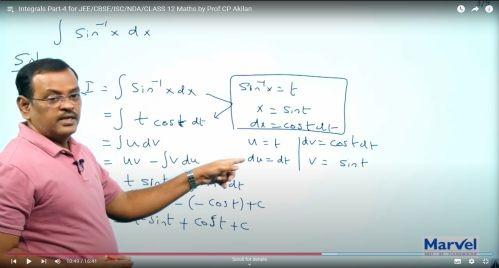 Integrals Part-4 for JEE/CBSE/ISC/NDA/CLASS 12 Maths by Prof CP Akilan
∫ Sin⁻¹x dx
Sol
I = ∫ Sin⁻¹x dx
= ∫ t cost dt
= ∫ u dv
= uv - ∫ v du
t sint
dt
- (-cost) + c
t sint + cost + c
Sin⁻¹x = t
x = sint
dx = cost dt
u = t
du = dt
dv = cost dt
v = sint
Marvel
10:49 / 16:41
Scroll for details